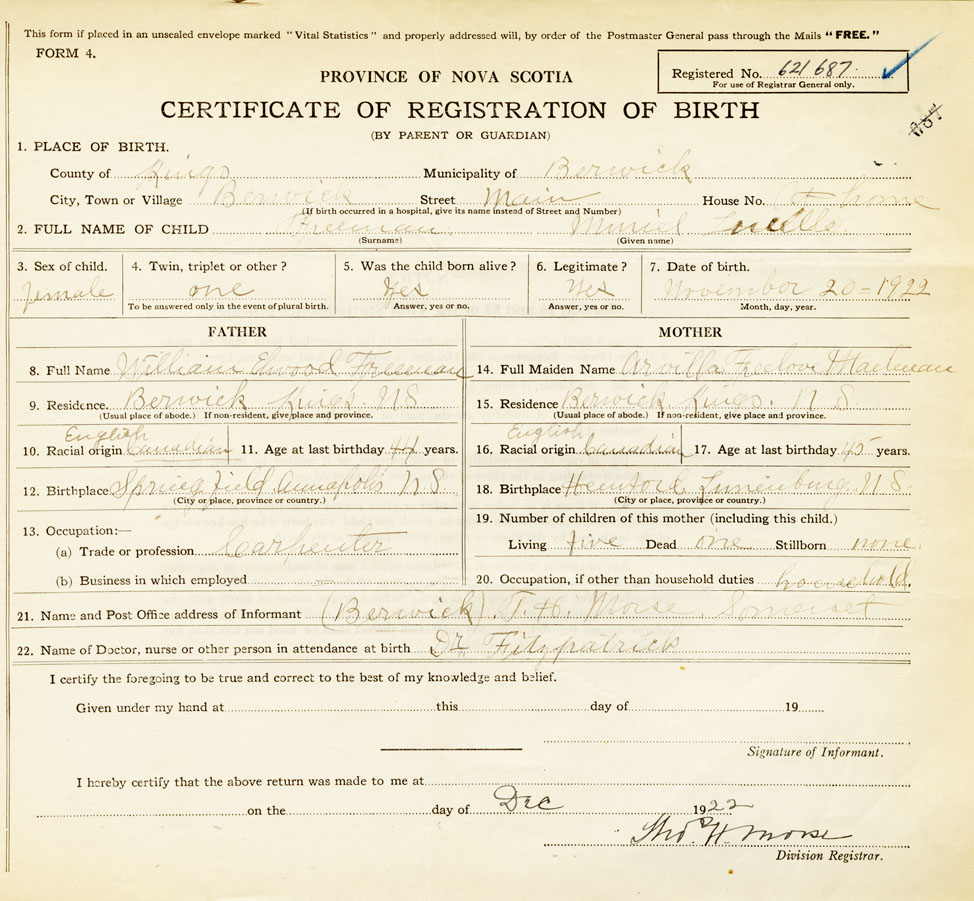 This form if placed in an unsealed envelope marked "Vital Statistics" and properly addressed will, by order of the Postmaster General pass through the Mails "FREE."
FORM 4.
Registered No. 621687.
For use of Registrar General only.
PROVINCE OF NOVA SCOTIA
CERTIFICATE OF REGISTRATION OF BIRTH
(BY PARENT OR GUARDIAN)
1. PLACE OF BIRTH.
County of Kings Municipality of Berwick
City, Town or Village Berwick Street Main House No. At home
(If birth occurred in a hospital, give its name instead of Street and Number)
2. FULL NAME OF CHILD Freeman Muriel Lucille
(Surname) (Given name)
3. Sex of child. 4. Twin, triplet or other? 5. Was the child born alive? 6. Legitimate? 7. Date of birth.
female one Yes Yes November 20 = 1922
To be answered only in the event of plural birth. Answer, yes or no. Answer, yes or no. Month, day, year.
FATHER MOTHER
8. Full Name William Elwood Freeman
9. Residence. Berwick Kings NS
(Usual place of abode.) If non-resident, give place and province.
English
10. Racial origin Canadian 11. Age at last birthday 44 years.
12. Birthplace Springfield Annapolis N.S.
(City or place, province or country.)
13. Occupation:—
(a) Trade or profession Carpenter
(b) Business in which employed —
14. Full Maiden Name Arvilla Freelove
15. Residence Berwick Kings. N S.
(Usual place of abode.) If non-resident, give place and province.
English
16. Racial origin Canadian 17. Age at last birthday 45 years.
18. Birthplace Lunenburg. N S.
(City or place, province or country.)
19. Number of children of this mother (including this child.)
Living five Dead one Stillborn none.
20. Occupation, if other than household duties household.
21. Name and Post Office address of Informant (Berwick). T. H. Morse, Somerset
22. Name of Doctor, nurse or other person in attendance at birth Dr. Fitzpatrick
I certify the foregoing to be true and correct to the best of my knowledge and belief.
Given under my hand at this day of 19
Signature of Informant.
I hereby certify that the above return was made to me at
on the day of Dec 1922
Tho. H. Morse
Division Registrar.